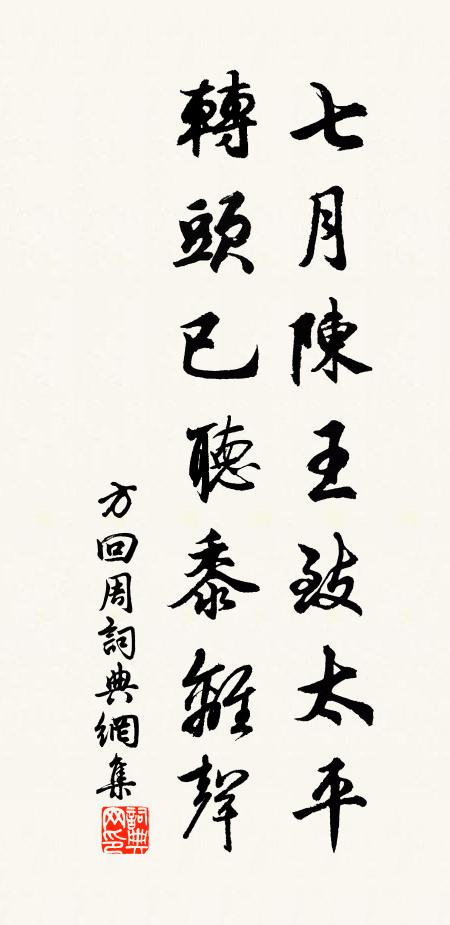 七月陳王致太平
轉頭已聽黍離聲
方回周詞典網集
詞典网印